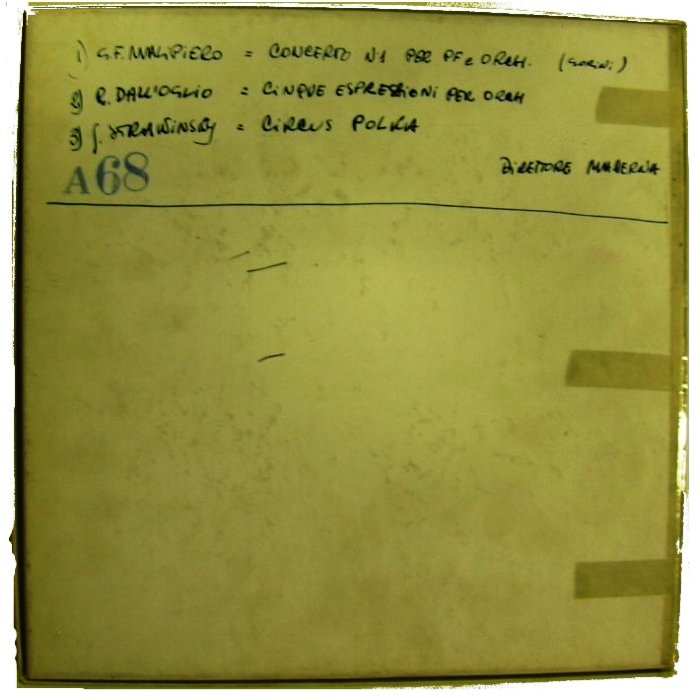 1) G.F. MALIPIERO = CONCERTO N1 PER PF e ORCH. (GORINI)
2) R. DALL'OGLIO = CINQUE ESPRESSIONI PER ORCH
3) I. STRAWINSKY = CIRCUS POLKA
A68
DIRETTORE MADERNA